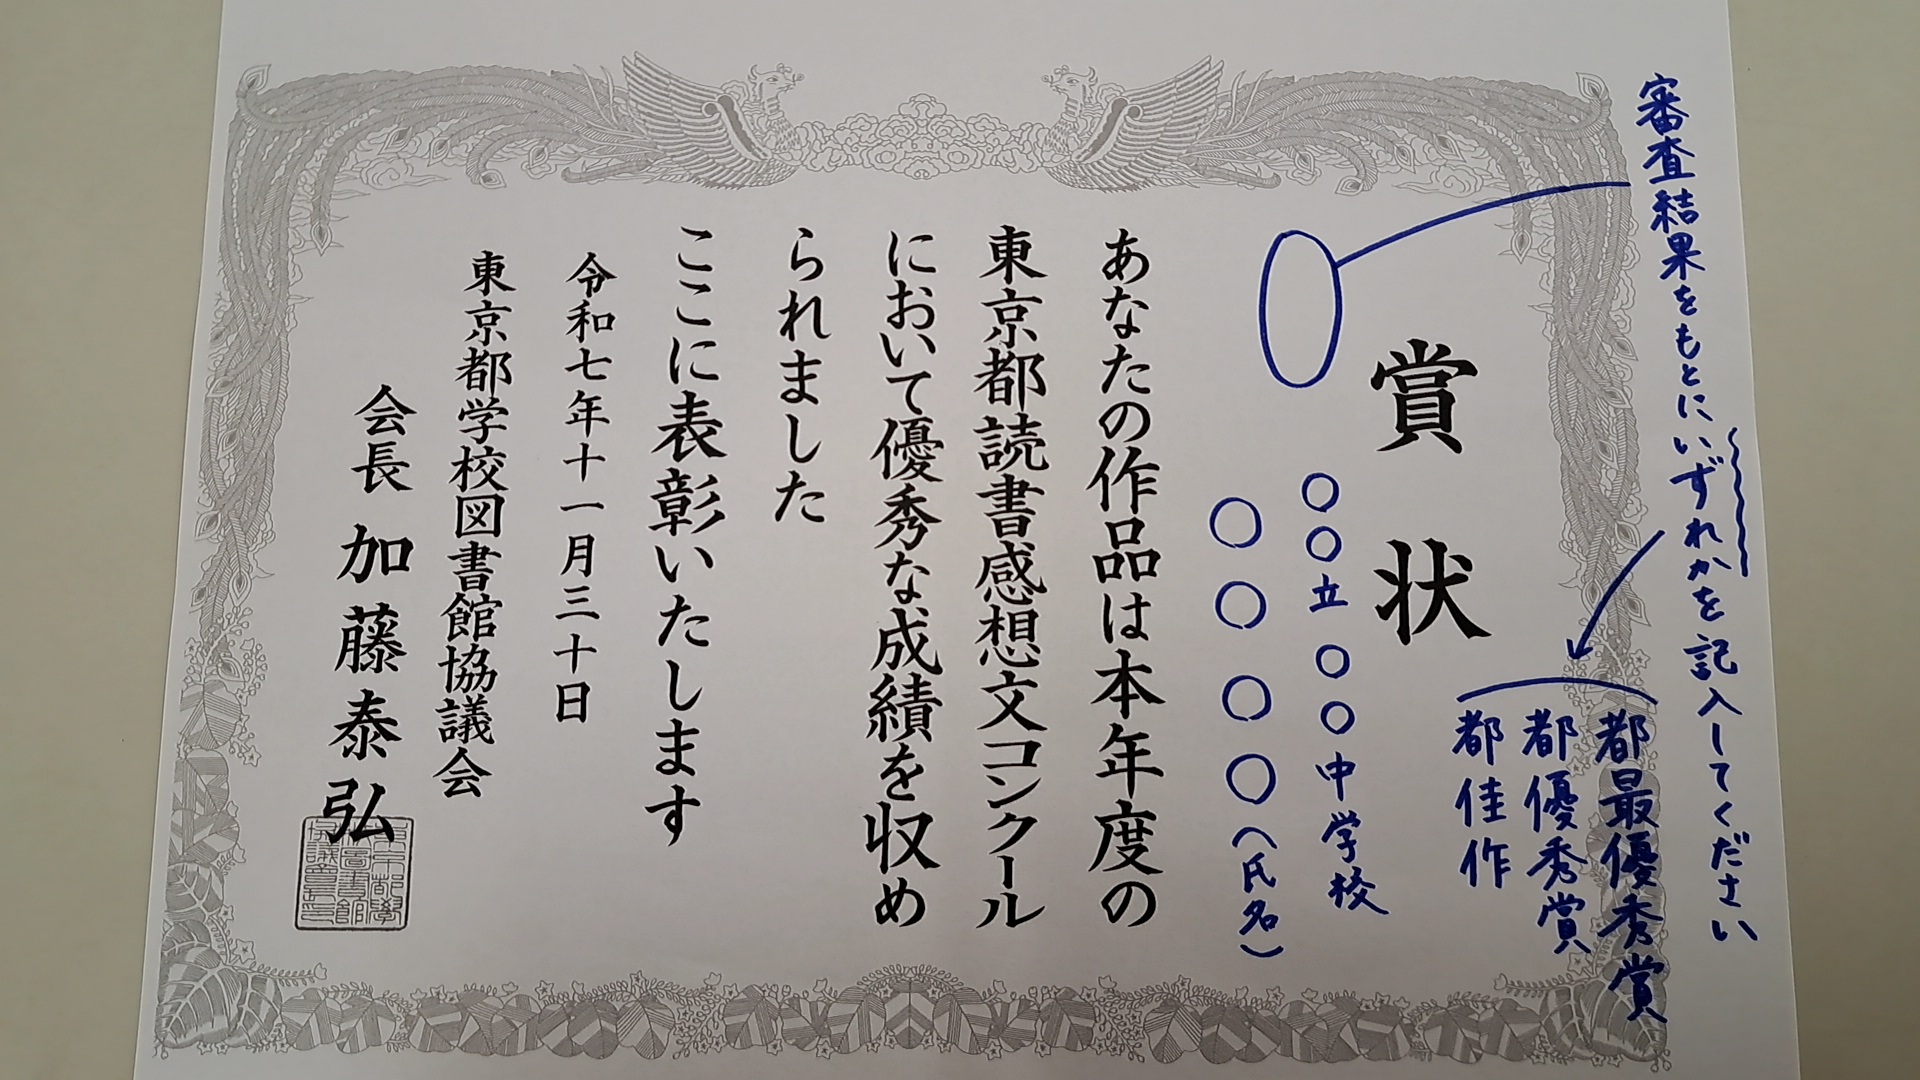 審査結果をもとにいずれかを記入してください
都最優秀賞
都優秀賞
都佳作
賞状
〇〇立〇〇中学校
〇〇〇〇(氏名)
あなたの作品は本年度の
東京都読書感想文コンクール
において優秀な成績を収め
られました
ここに表彰いたします
令和七年十一月三十日
東京都学校図書館協議会
会長 加藤泰弘